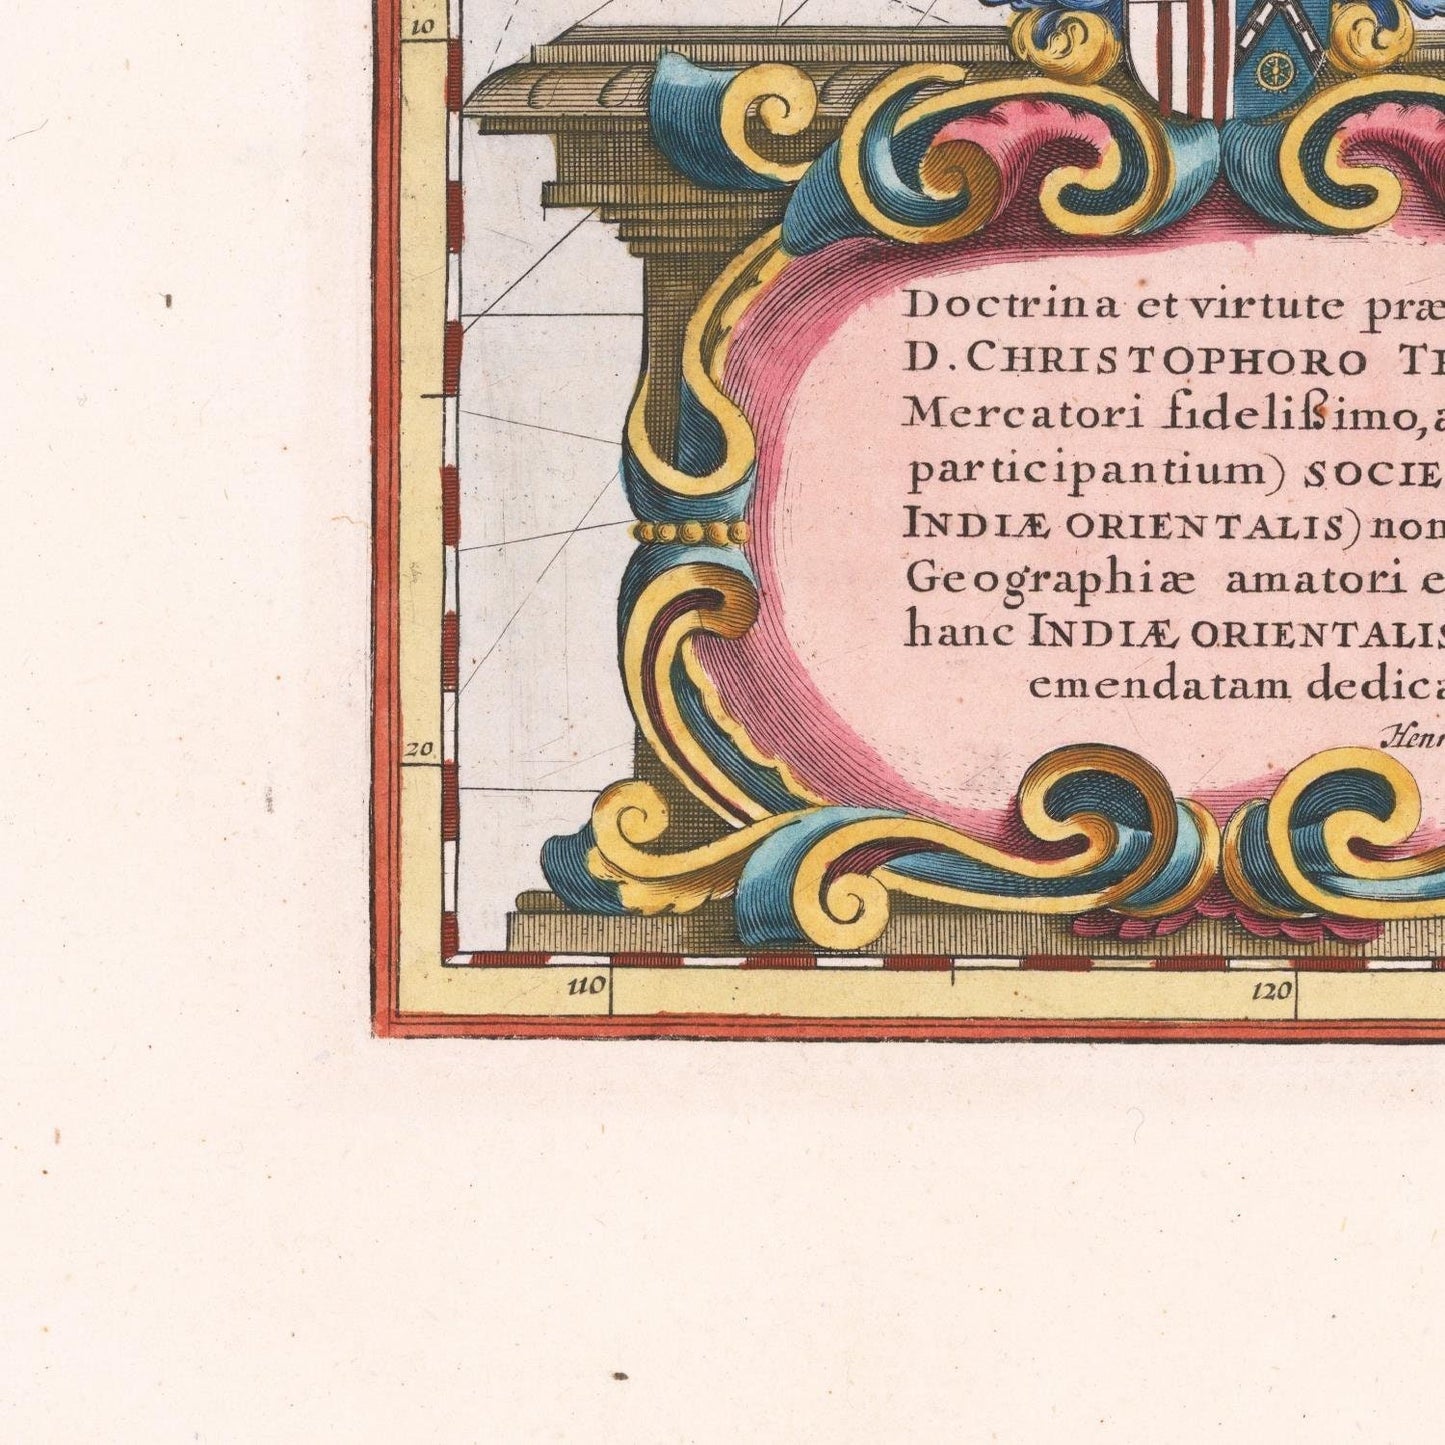 10
Doctrina et virtute præ
D. CHRISTOPHORO
Mercatori fidelißimo,
participantium) SOCIE
INDIÆ ORIENTALIS) non
Geographiæ amatori e
hanc INDIÆ ORIENTALIS
emendatam dedica
Henr
20
110
120